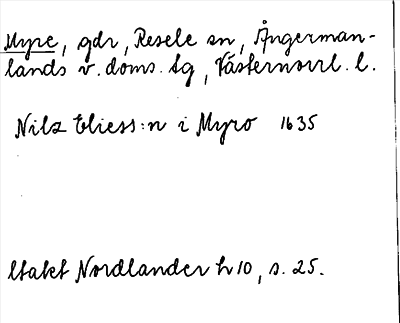 Myre, gdr, Resele sn, Ångerman-
lands v. doms. tg, Västernorrl. l.
Nilz Eliess:n i Myro 1635
Nordlander h 10, s. 25.